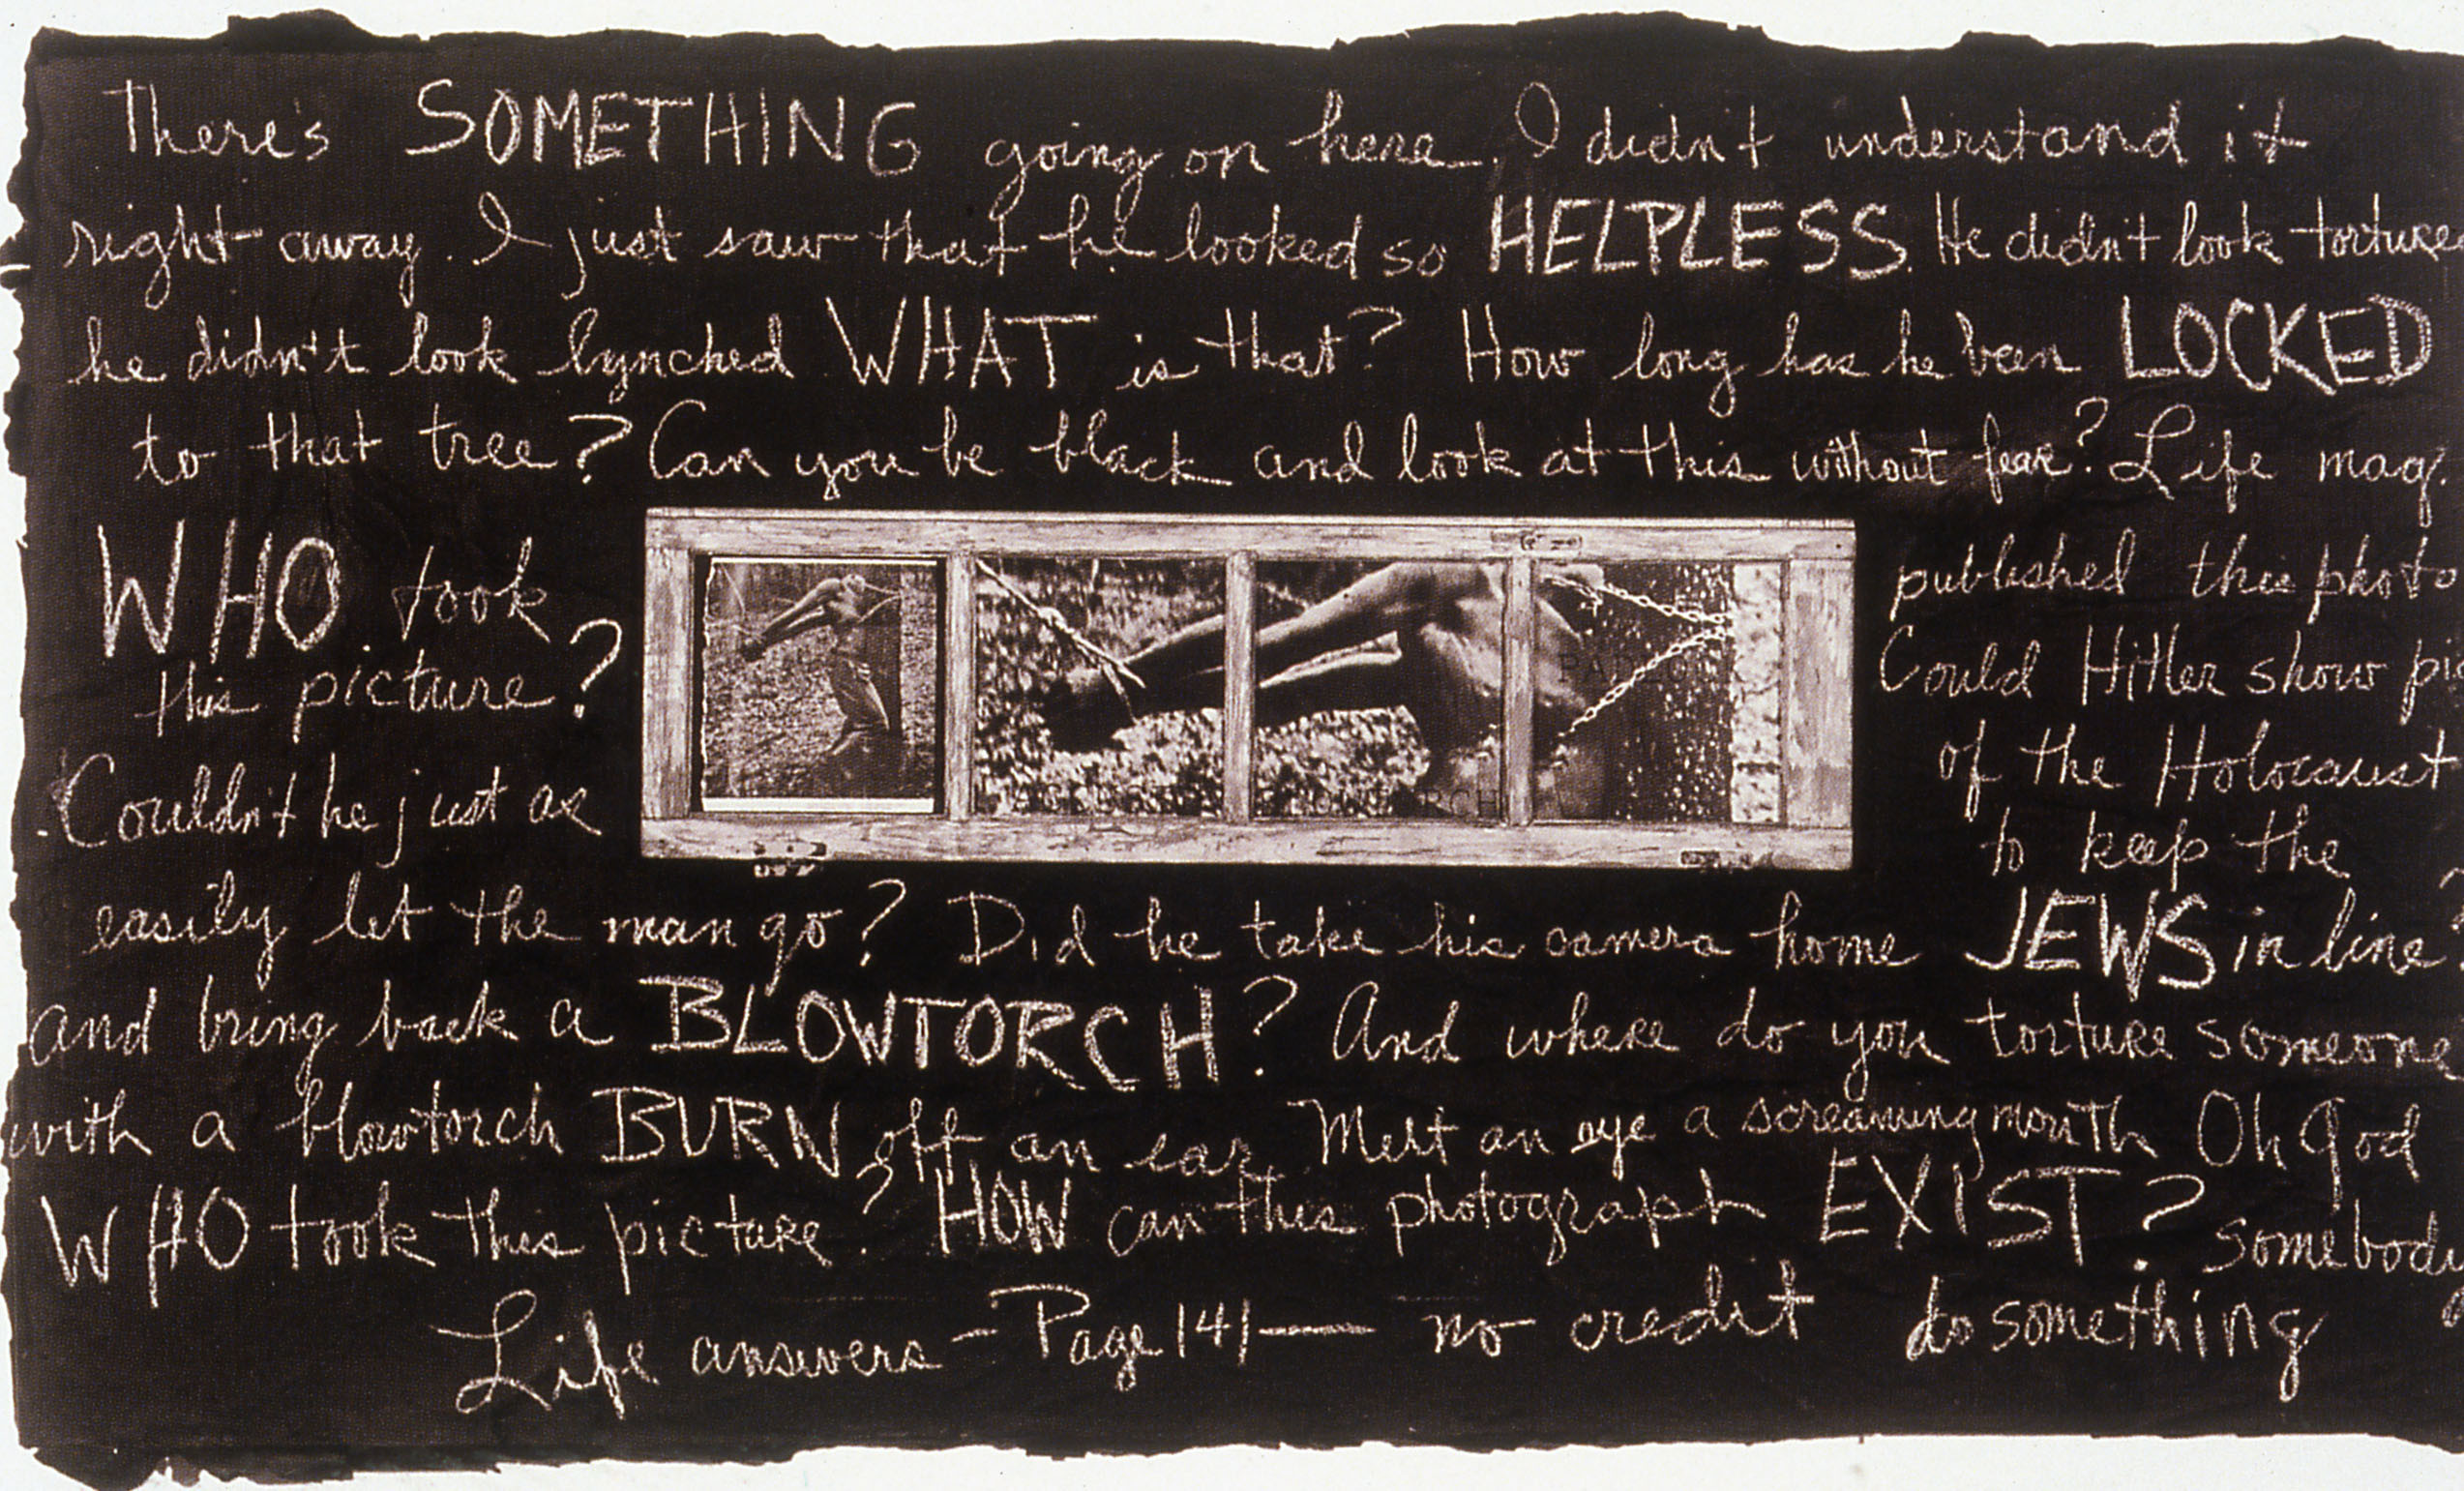 There's SOMETHING going on here. I didn't understand it
right away. I just saw that he looked so HELPLESS. He didn't look torture
he didn't look lynched WHAT is that? How long has he been LOCKED
to that tree? Can you be black and look at this without fear? Life mag.
published this photo
Could Hitler show pic
of the Holocaust
to keep the
JEWS in line?
WHO took
this picture?
Couldn't he just as
easily let the man go? Did he take his camera home
and bring back a BLOWTORCH? And where do you torture someone
with a blowtorch BURN off an ear? Melt an eye a screaming mouth Oh God
WHO took this picture? HOW can this photograph EXIST? Somebody
do something
Life answers - Page 141 — no credit